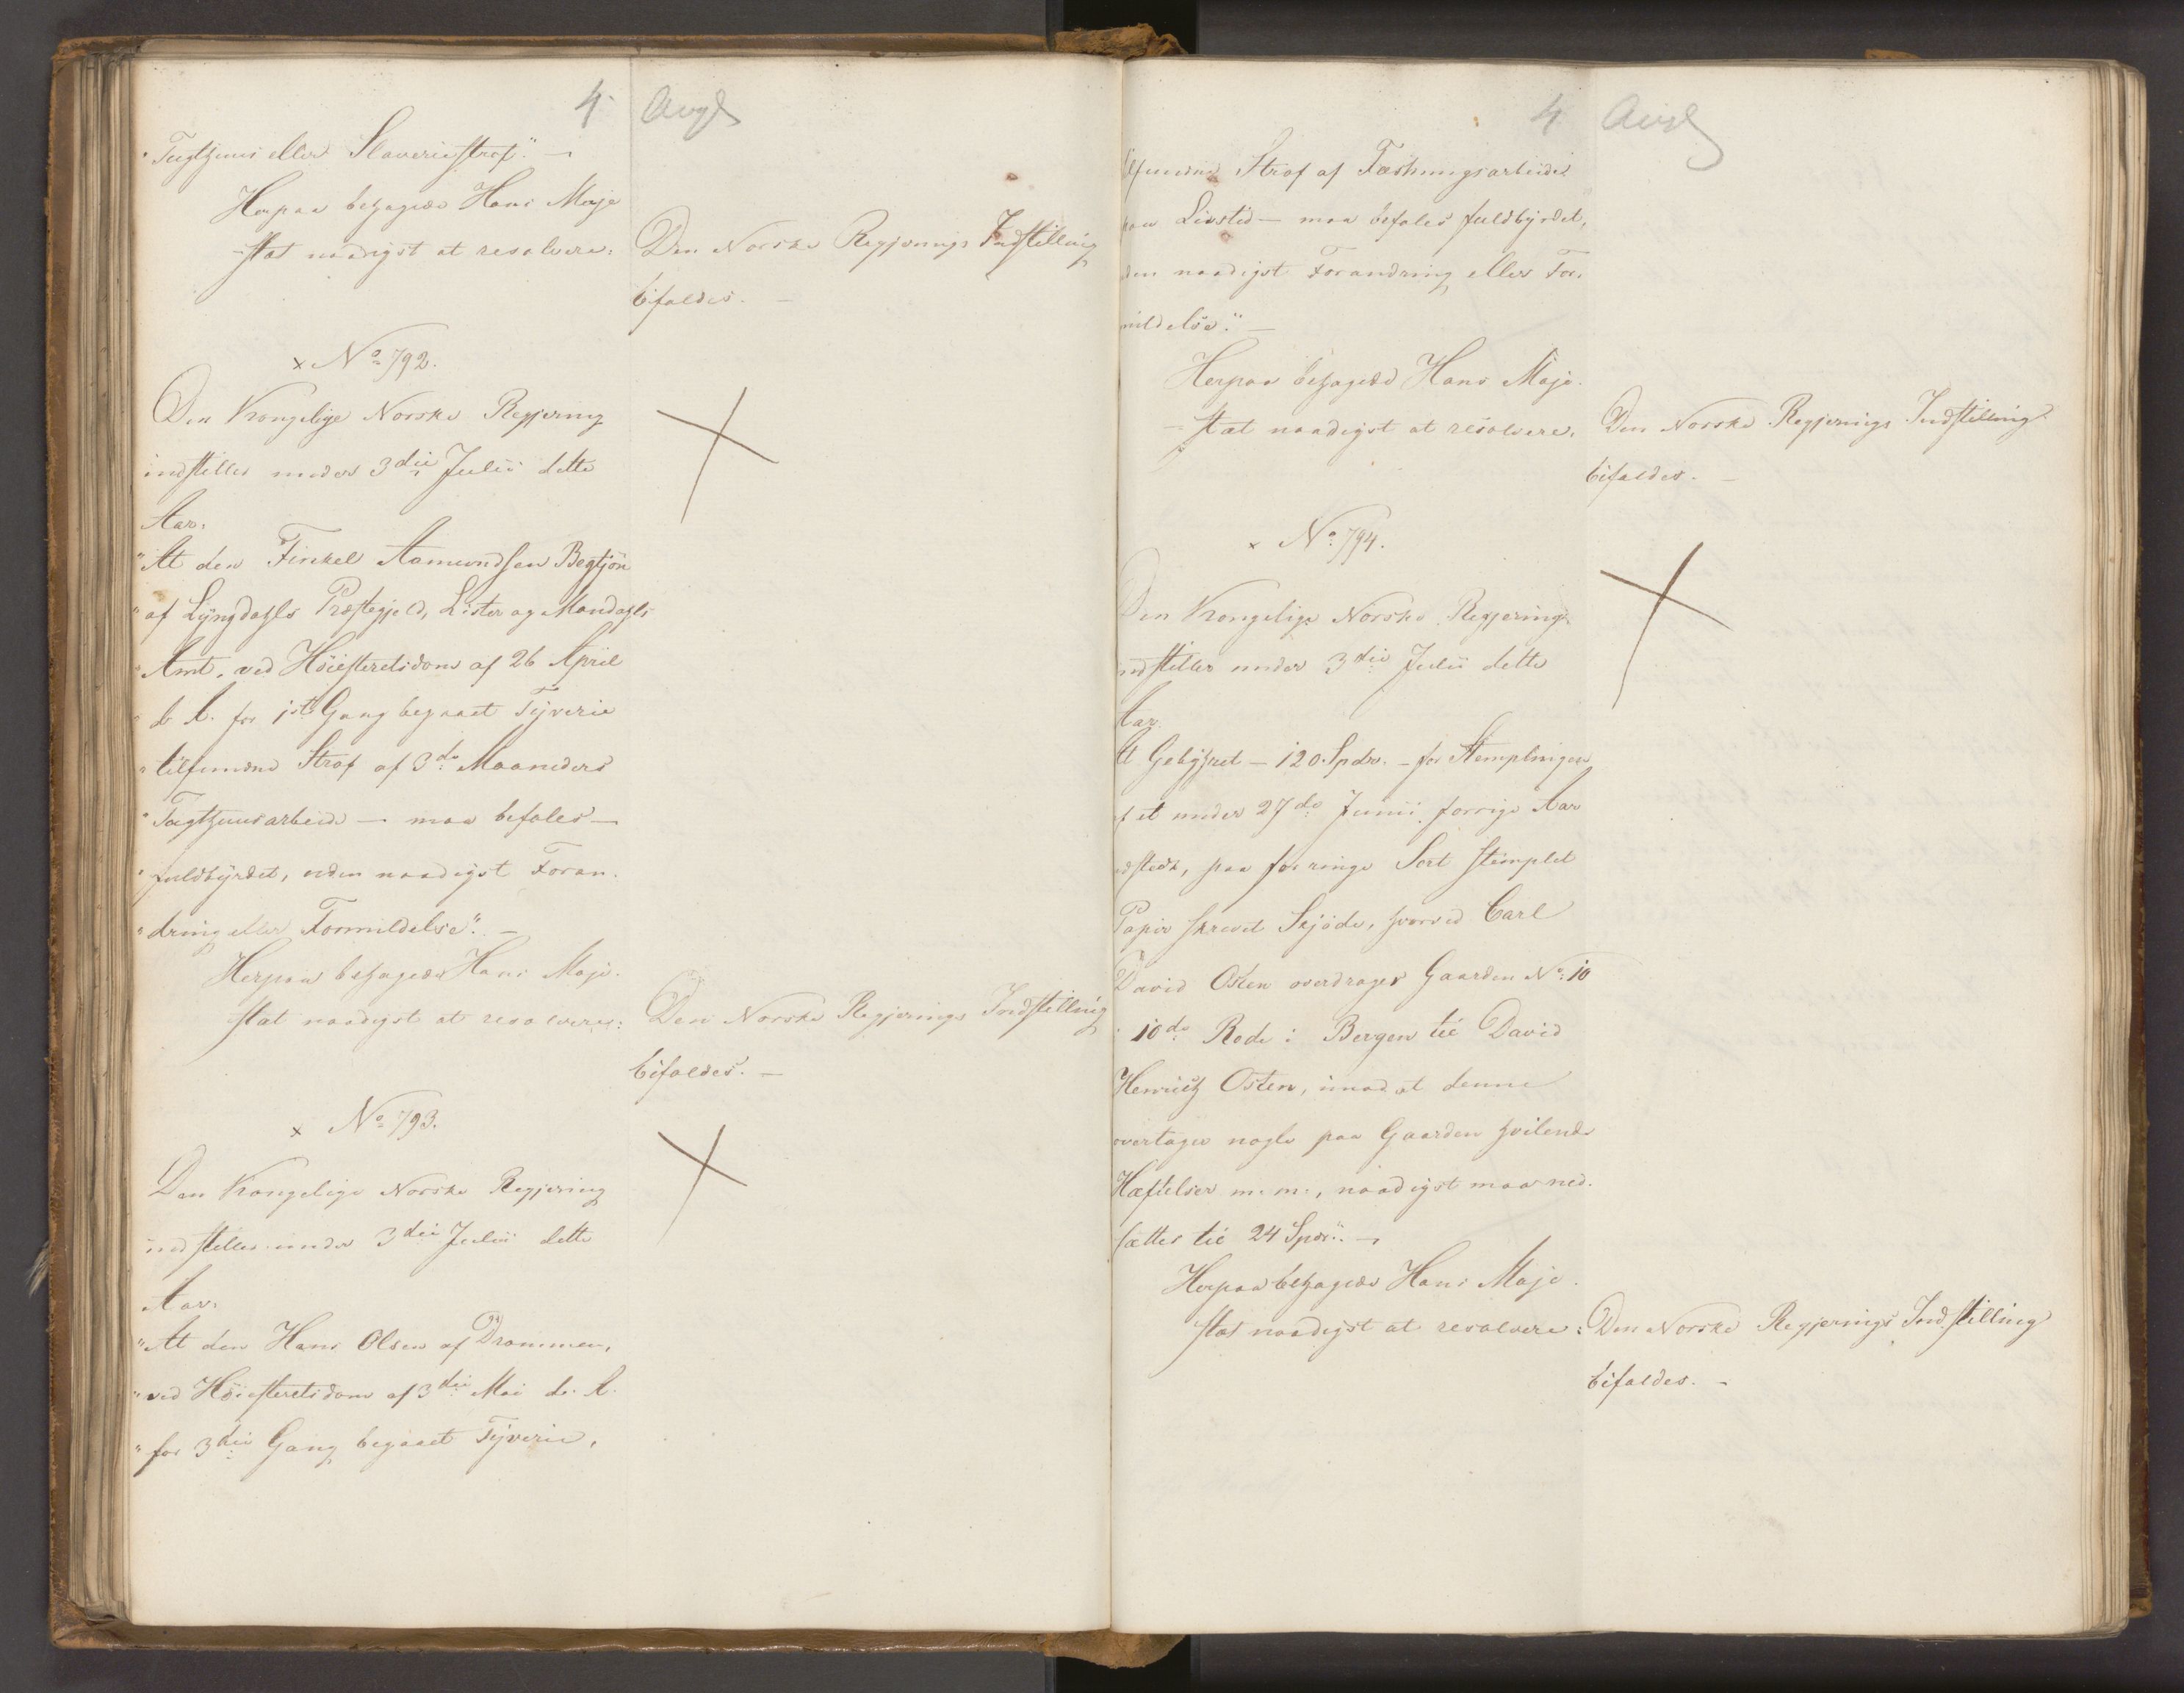 4 Augs
"Tugthuus eller Slaveriestraf." —
Herpaa behagede Hans Maje-
-stæt naadigst at resolvere:
Den Norske Regjerings Indstilling
bifaldes. —
x No 792.
Den Kongelige Norske Regjering
indstiller under 3die Julii dette
Aar:
"At den Tinkel Aamundsen Begtjön
"af Lyngdahls Præstegjeld, Lister og Mandahls
"Amt, ved Höiesteretsdom af 26 April
"d. A. for 1ste Gang begaaet Tyverie
"tilfundne Straf af 3de Maaneders
"Tugthuusarbeide — maa befales —
"fuldbyrdet, uden naadigst Foran-
"dring eller Formildelse". —
Herpaa behagede Hans Maje-
stæt naadigst at resolvere:
Den Norske Regjerings Indstilling
bifaldes. —
x No 793.
Den Kongelige Norske Regjering
indstiller under 3die Julii dette
Aar:
"At den Hans Olsen af Drammen,
"ved Höiesteretsdom af 3die Mai d. A.
"for 3die Gang begaaet Tyverie,
4 Augs
tilfundne Straf af Fæstningsarbeide
paa Livstid — maa befales fuldbyrdet,
uden naadigst Forandring eller For-
mildelse." —
Herpaa behagede Hans Maje-
-stæt naadigst at resolvere,
Den Norske Regjerings Indstilling
bifaldes. —
x No 794.
Den Kongelige Norske Regjering
indstiller under 3die Julii dette
Aar.
At Gebyhret — 120 Spdr. — for Stemplingen
af et under 27de Junii forrige Aar
udstedt, paa for ringe Sort stemplet
Papir skrevet Skjöde, hvorved Carl
David Osten overdrager Gaarden No 10
10de Rode i Bergen til David
Henrich Osten, imod at denne
overtager nogle paa Gaarden hvilende
Hæftelser m. m., naadigst maa ned-
sættes til 24 Spdr". —
Herpaa behagede Hans Maje-
stæt naadigst at resolvere:
Den Norske Regjerings Indstilling
bifaldes. —